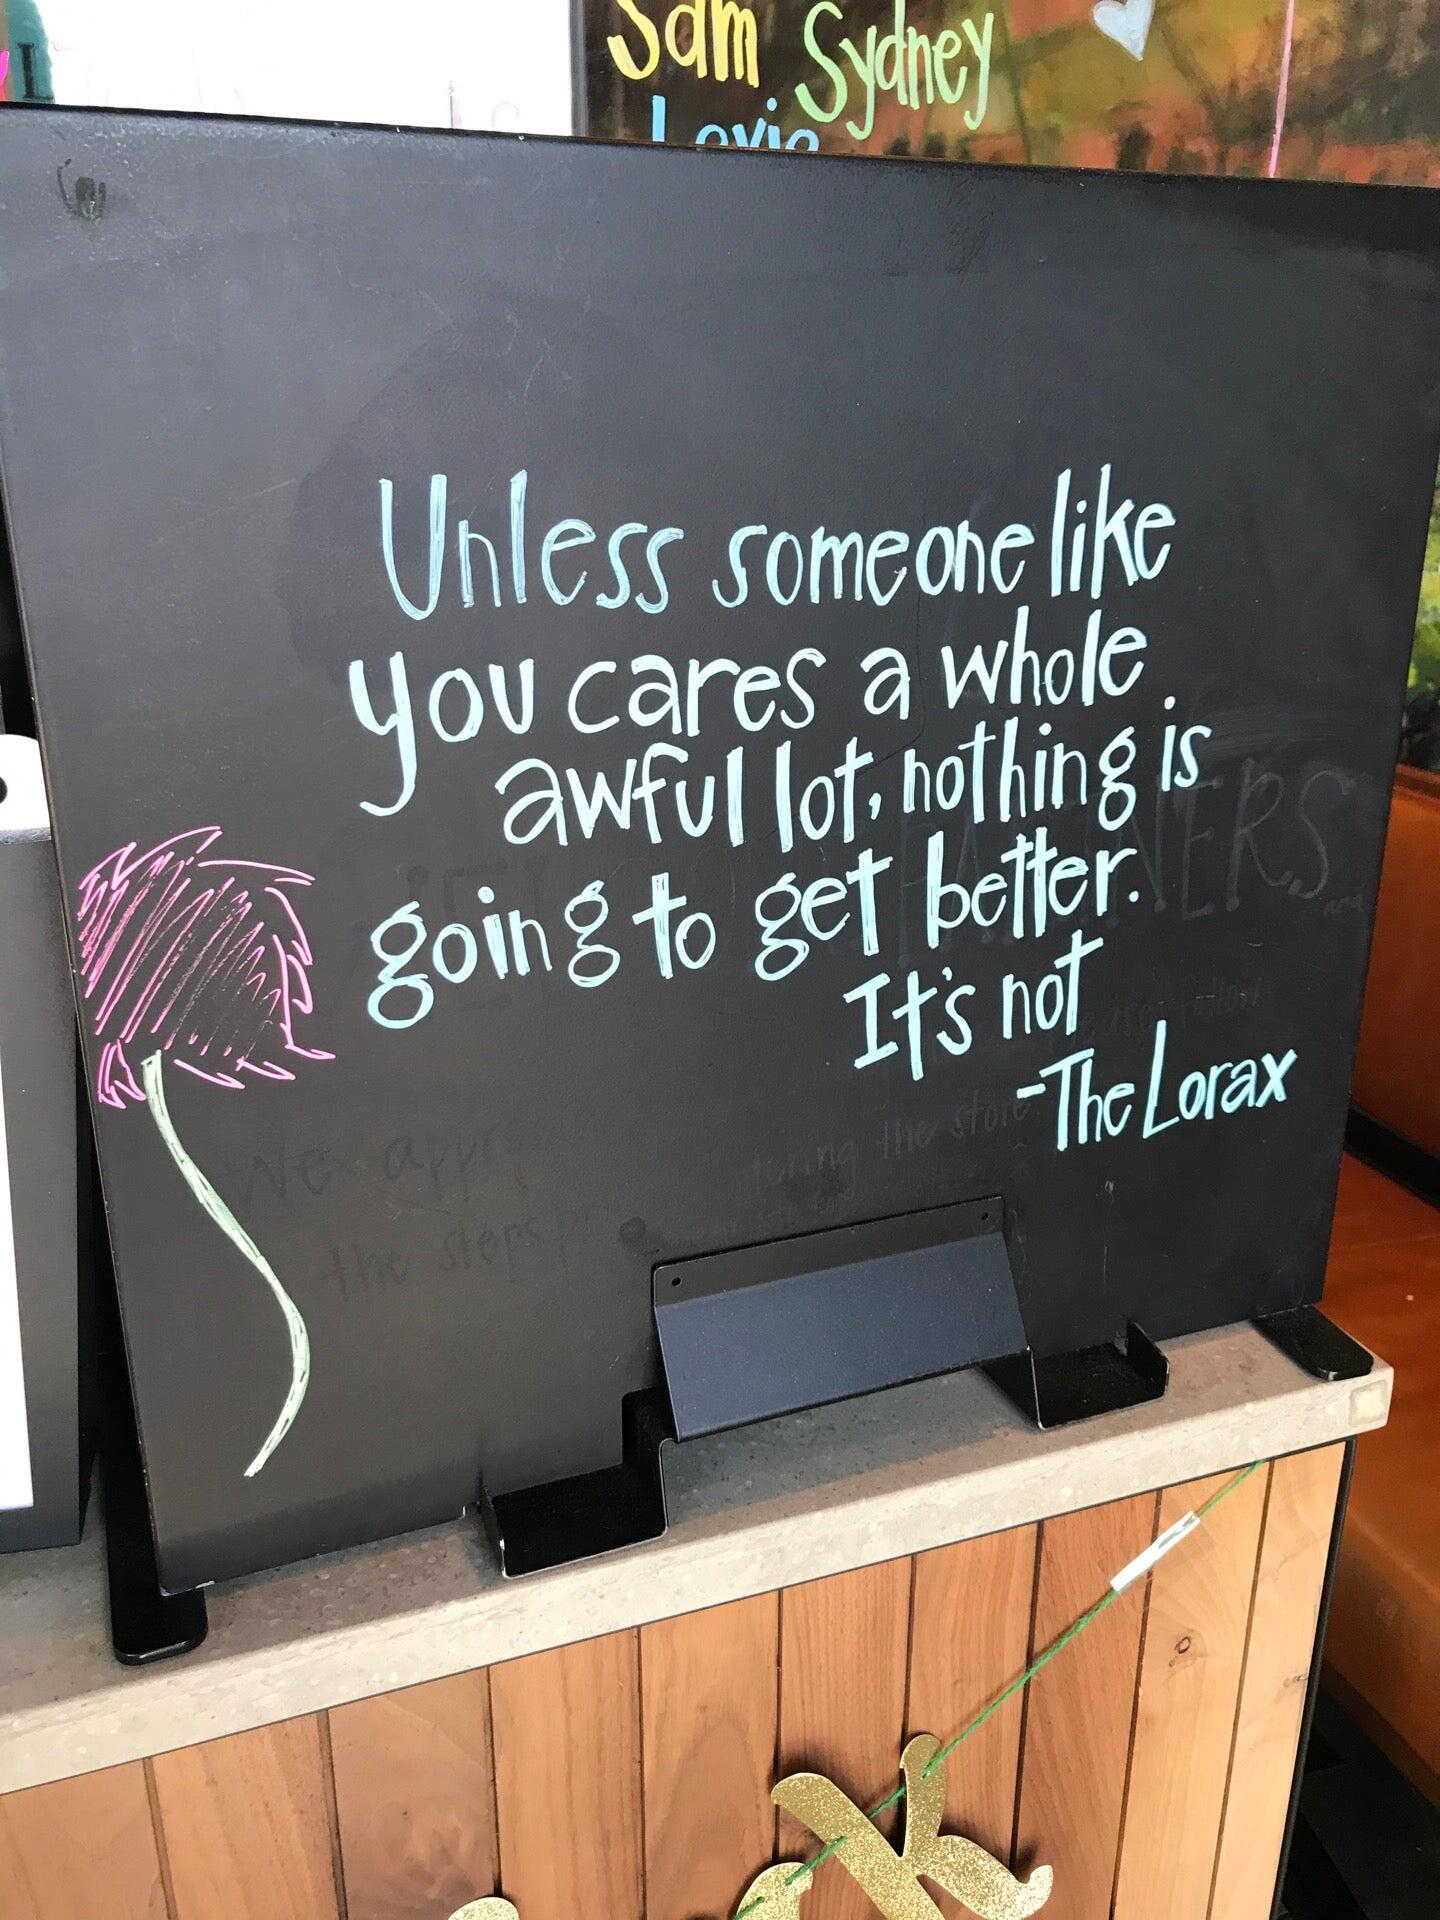 Sam Sydney
Unless someone like
you cares a whole
awful lot, nothing is
going to get better.
It's not
-The Lorax
We
the store
the steps